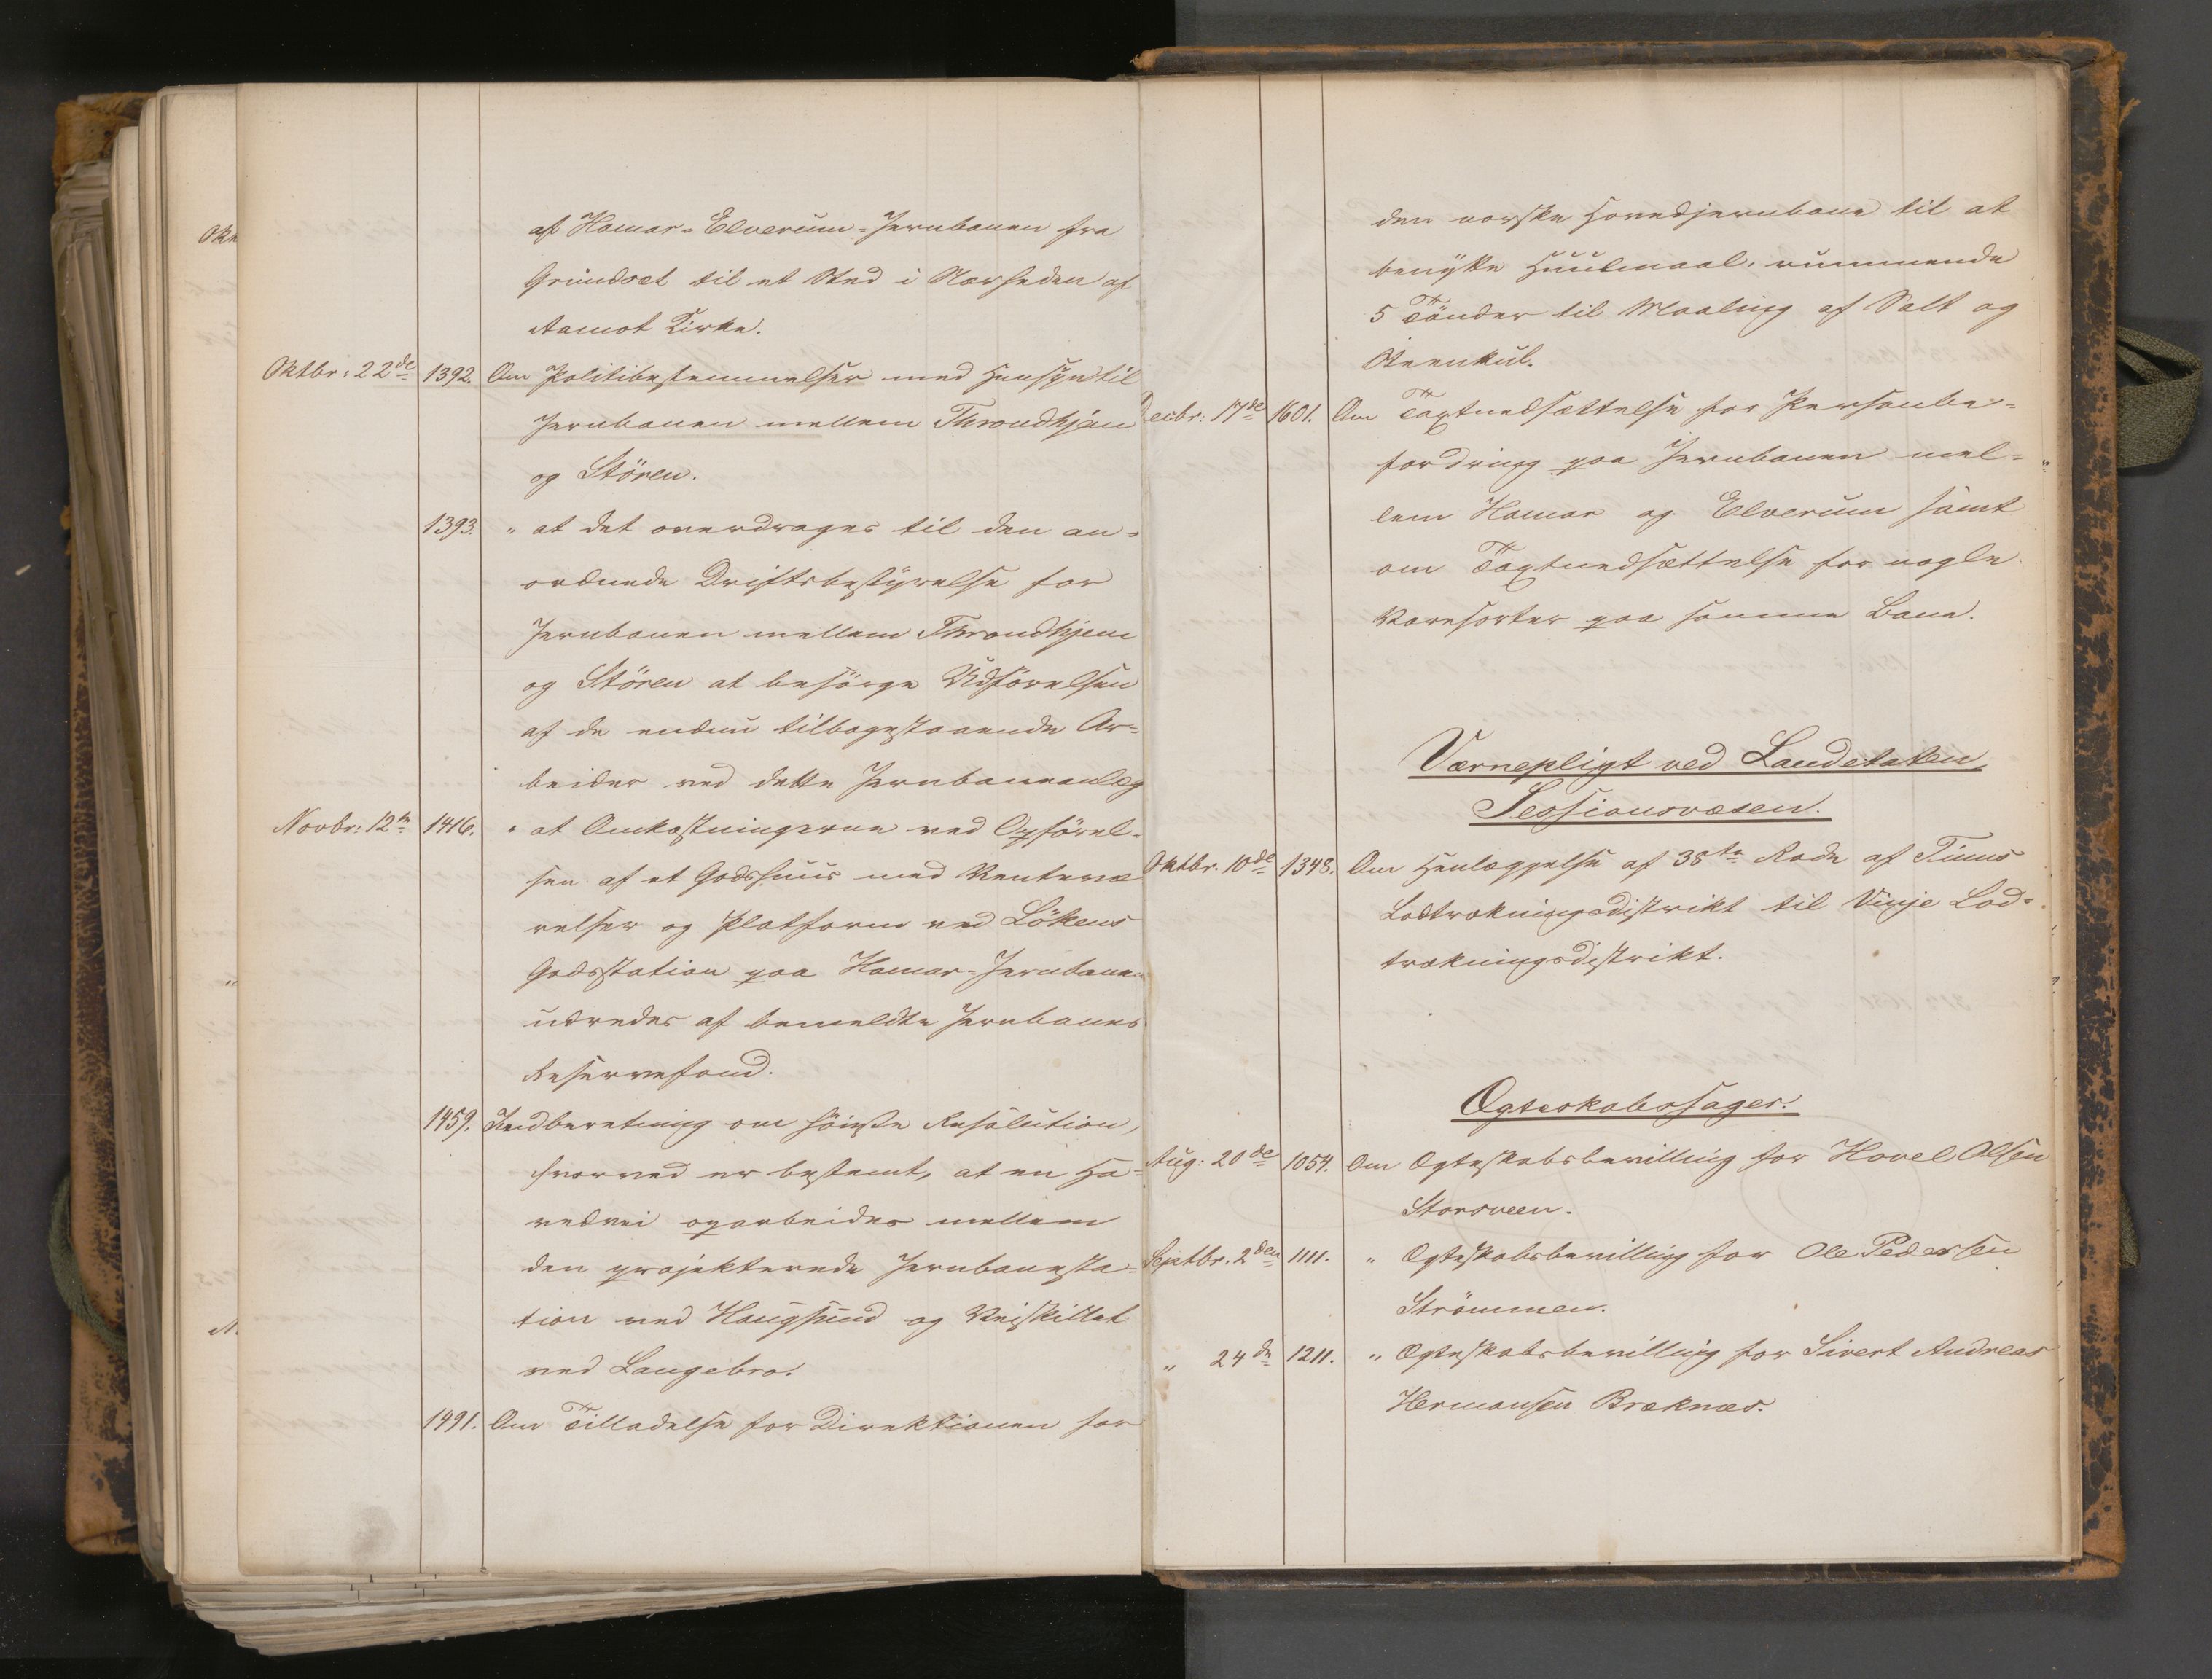 af Hamar-Elverum-Jernbanen fra
Grundset til et Sted i Nærheden af
Aamot Kirke.
Oktbr: 22de 1392. Om Politibestemmelser med Hensyn til
Jernbanen mellem Throndhjem
og Stören.
1393. " at det overdrages til den an=
ordnede Driftsbestyrelse for
Jernbanen mellem Throndhjem
og Stören at besörge Udförelsen
af de endnu tilbagestaaende Ar=
beider ved dette Jernbaneanlæg
Novbr: 12te 1416. " at Omkostningerne ved Opförel=
sen af et Godshuus med Ventevæ
relser og Platform ved Lökens
Godsstation paa Hamar-Jernbane
udredes af bemeldte Jernbanes
Reservefond.
1459. Indberetning om höieste Resolution,
hvorved er bestemt, at en Ho=
vedvei oparbeides mellem
den projekterede Jernbanesta=
tion ved Haugsund og Veiskillet
ved Langebro.
1491. Om Tilladelse for Direktionen for
den norske Hovedjernbane til at
benytte Huulmaal, rummende
5 Tönder til Maaling af Salt og
Steenkul.
Decbr: 17de 1601. Om Taxtnedsættelse for Personbe=
fordring paa Jernbanen mel=
lem Hamar og Elverum samt
om Taxtnedsættelse for nogle
Varesorter paa samme Bane.
Værnepligt ved Landetaten
Sessionsvæsen.
Oktbr. 10de 1348. Om Henlæggelse af 38te Rode af Tinns
Lodtrækningsdistrikt til Vinje Lod=
trækningsdistrikt.
Ægteskabssager.
Aug: 20de 1054. Om Ægteskabsbevilling for Hovel Olsen
Storsveen.
Septbr. 2den 1111. " Ægteskabsbevilling for Ole Pedersen
Strömmen.
" 24de 1211. " Ægteskabsbevilling for Sivert Andreas
Hermansen Bræknæs.